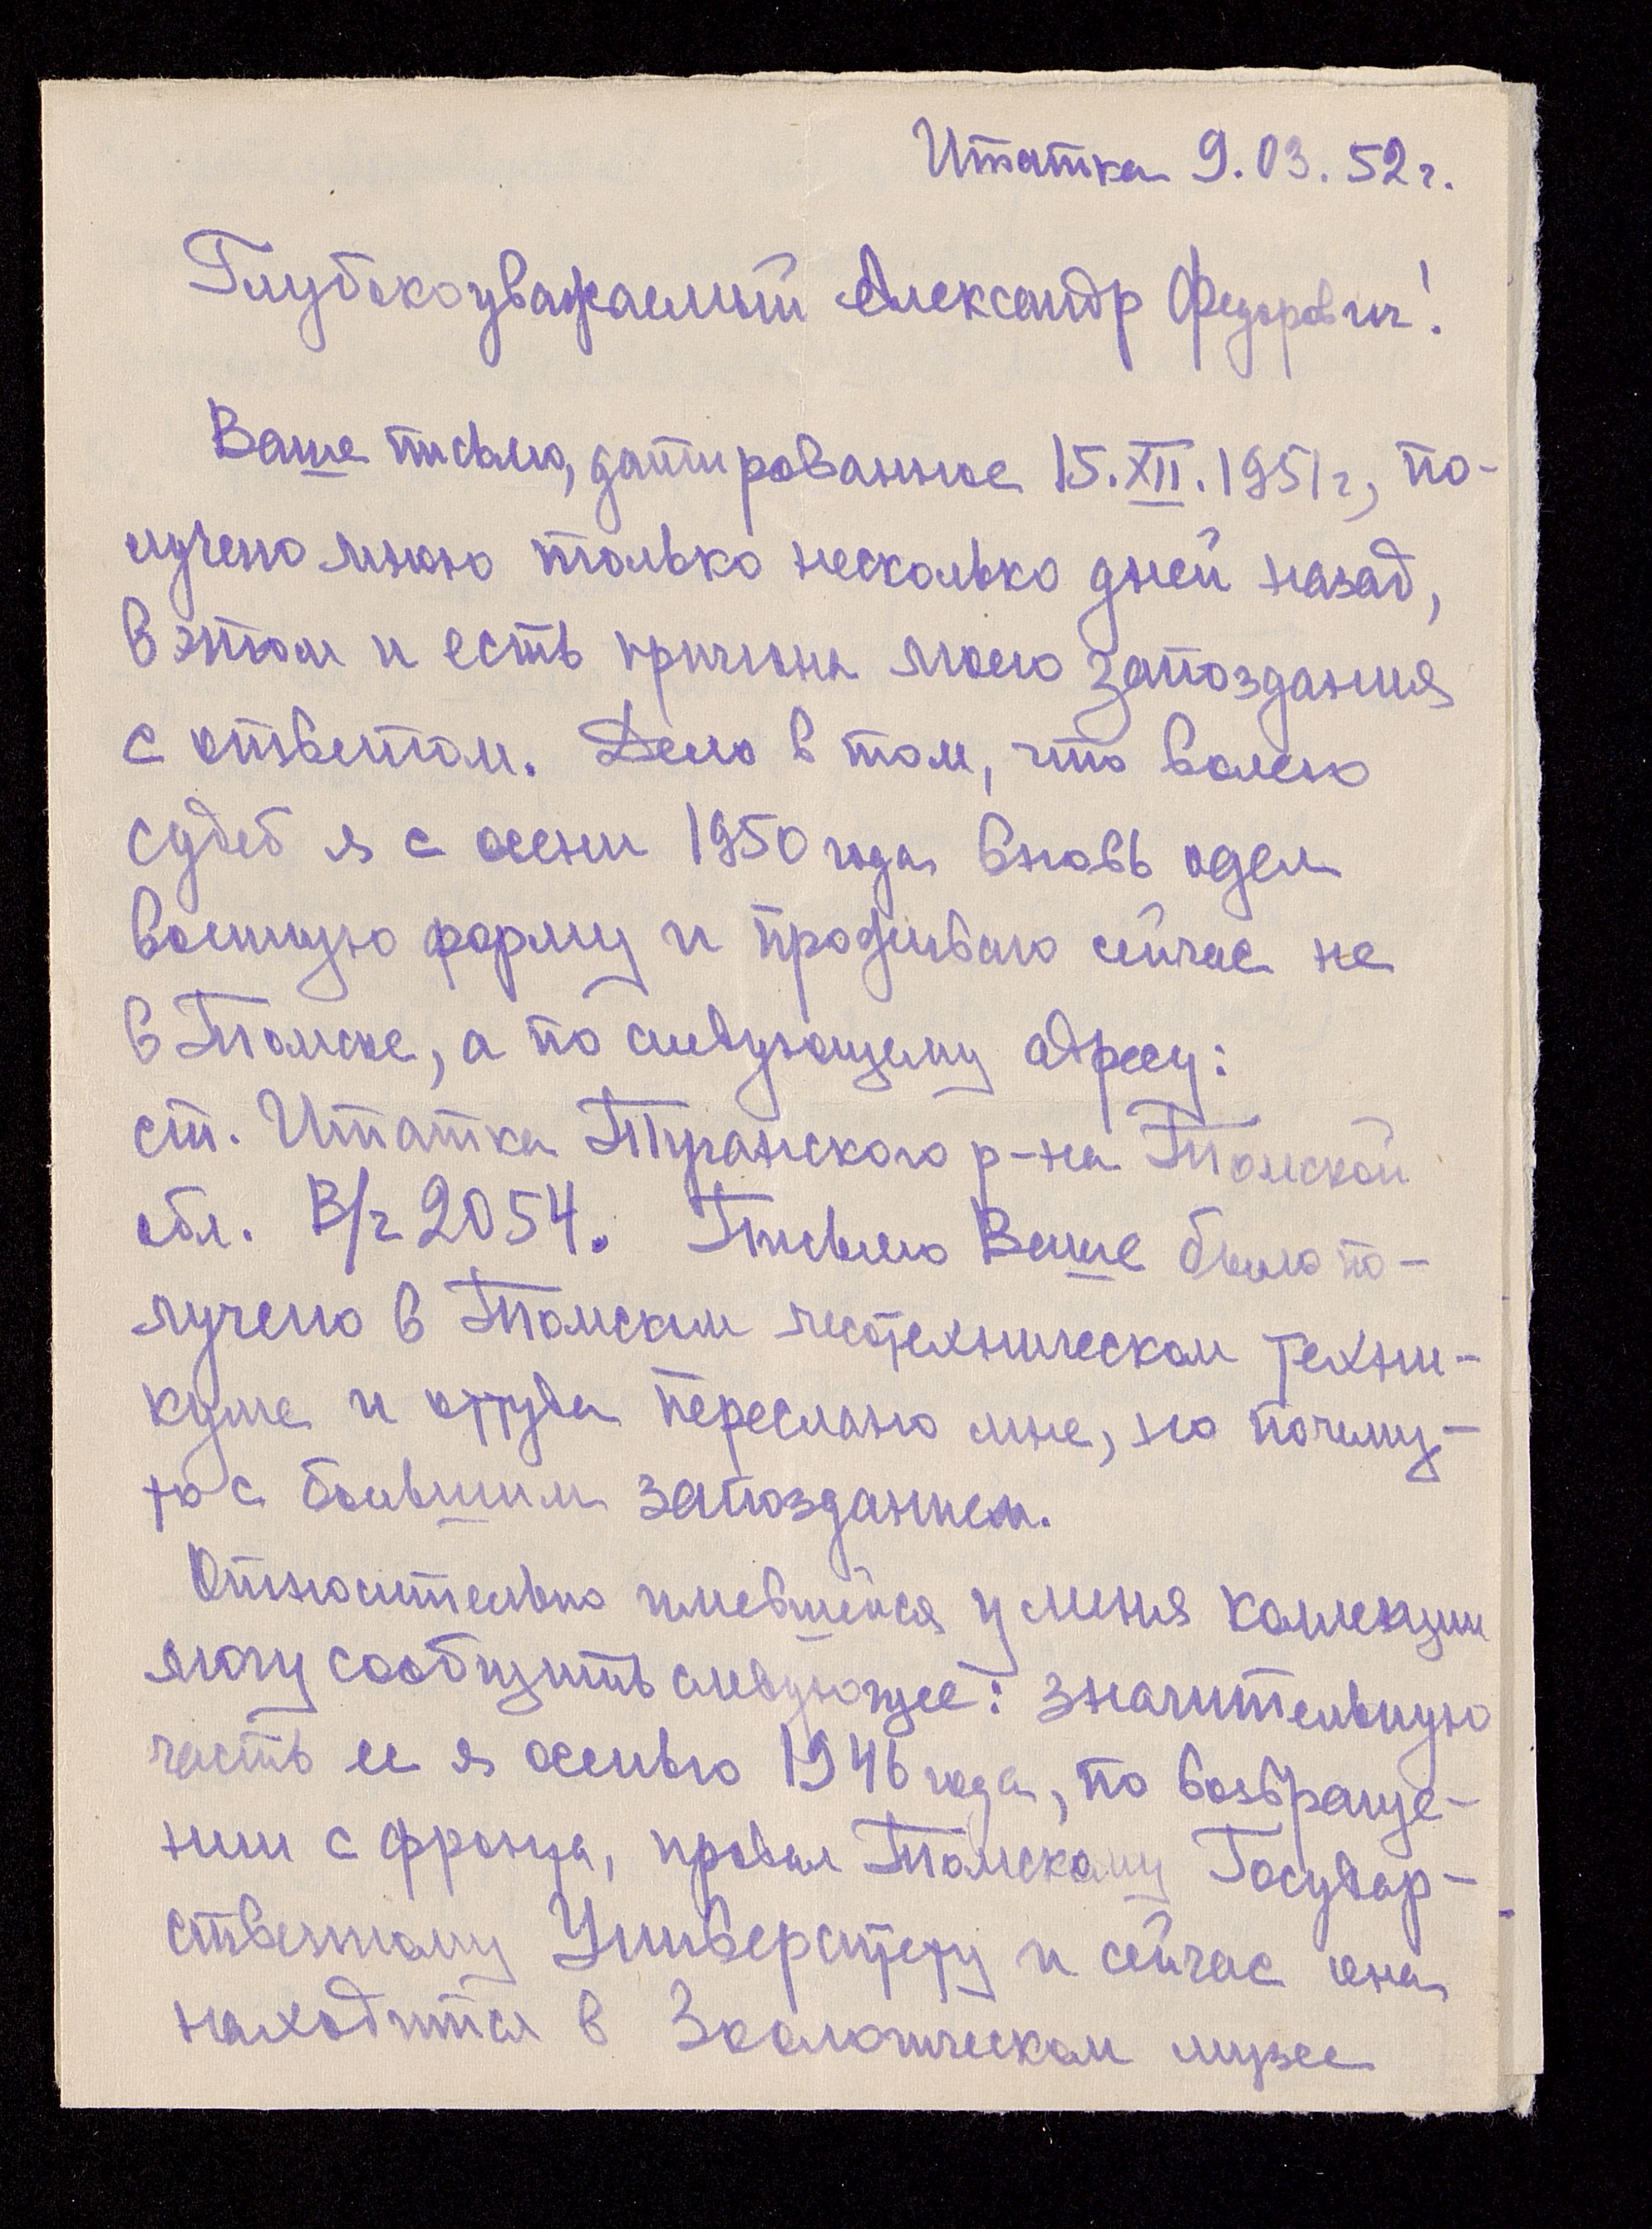 Итатка 9.03.52 г.
Глубокоуважаемый Александр Федорович!
Ваше письмо, датированное 15.XII.1951 г, по-
лучено мною только несколько дней назад,
в этом и есть причина моего запоздания
с ответом. Дело в том, что волею
судеб я с осени 1950 года вновь одел
военную форму и проживаю сейчас не
в Томске, а по следующему адресу:
ст. Итатка Туганского р-на Томской
обл. В/ч 2054. Письмо Ваше было по-
лучено в Томском лесотехническом техни-
куме и оттуда переслано мне, но почему-
то с большим запозданием.
Относительно имевшейся у меня коллекции
могу сообщить следующее: значительную
часть ее я осенью 1946 года, по возвраще-
нии с фронта, продал Томскому Государ-
ственному Университету и сейчас она
находится в Зоологическом музее